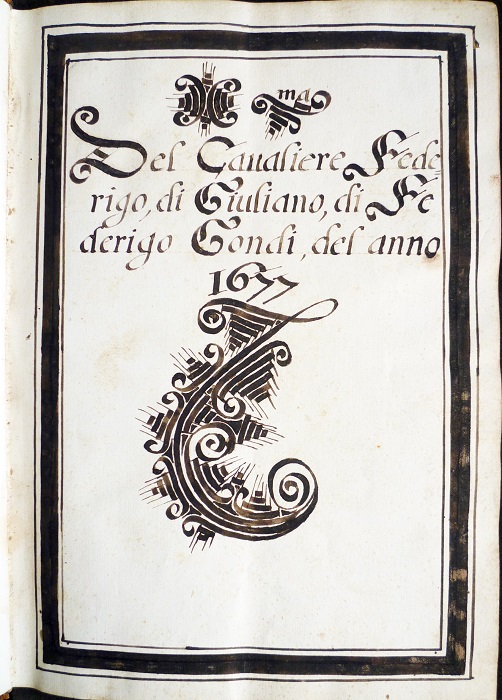 ma
Del Caualiere Fede-
rigo, di Giuliano, di Fe
derigo Gondi, del anno
1677